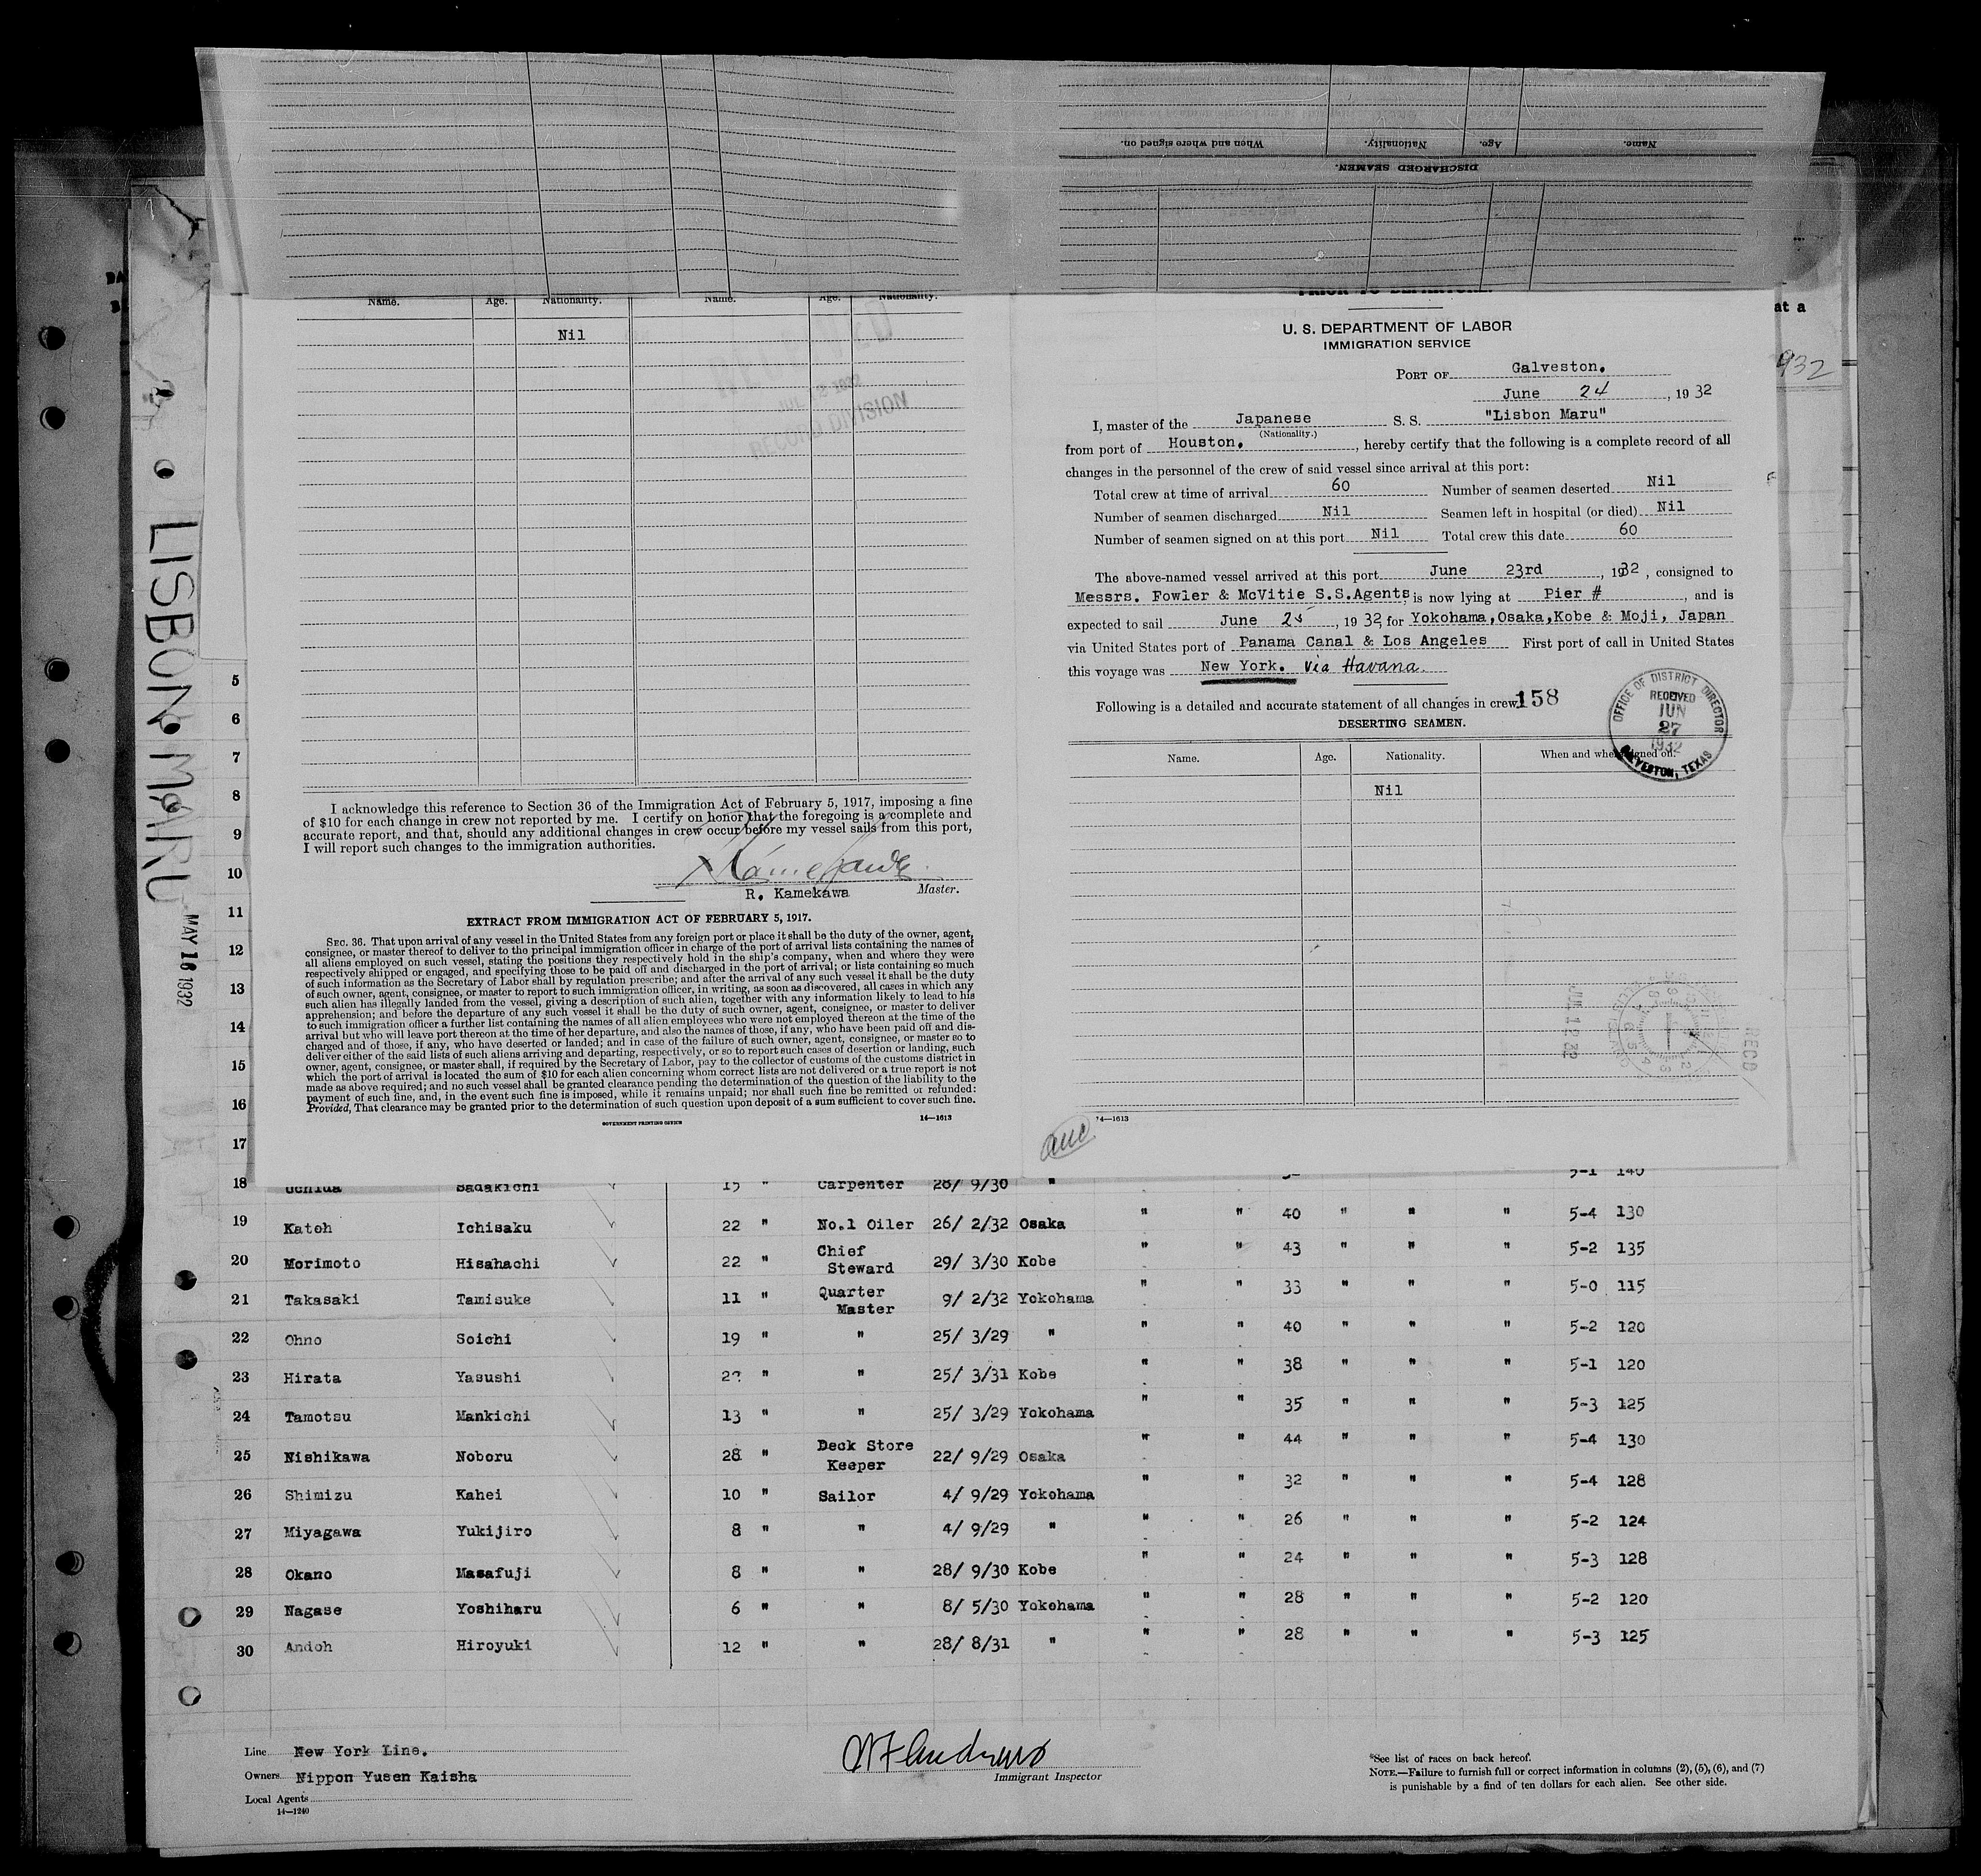 When and where signed on.
Nationality.
Age.
Name.
DISCHARGED SEAMEN.
at a
932
LISBON MARU
MAY 16 1932
Name.
Age.
Nationality.
Name.
Age.
Nationality.
Nil
RECORD DIVISION
I acknowledge this reference to Section 36 of the Immigration Act of February 5, 1917, imposing a fine
of $10 for each change in crew not reported by me. I certify on honor that the foregoing is a complete and
accurate report, and that, should any additional changes in crew occur before my vessel sails from this port,
I will report such changes to the immigration authorities.
R. Kamekawa Master.
EXTRACT FROM IMMIGRATION ACT OF FEBRUARY 5, 1917.
SEC. 36. That upon arrival of any vessel in the United States from any foreign port or place it shall be the duty of the owner, agent,
consignee, or master thereof to deliver to the principal immigration officer in charge of the port of arrival lists containing the names of
all aliens employed on such vessel, stating the positions they respectively hold in the ship's company, when and where they were
respectively shipped or engaged, and specifying those to be paid off and discharged in the port of arrival; or lists containing so much
of such information as the Secretary of Labor shall by regulation prescribe; and after the arrival of any such vessel it shall be the duty
of such owner, agent, consignee, or master to report to such immigration officer, in writing, as soon as discovered, all cases in which any
such alien has illegally landed from the vessel, giving a description of such alien, together with any information likely to lead to his
apprehension; and before the departure of any such vessel it shall be the duty of such owner, agent, consignee, or master to deliver
to such immigration officer a further list containing the names of all alien employees who were not employed thereon at the time of the
arrival but who will leave port thereon at the time of her departure, and also the names of those, if any, who have been paid off and dis-
charged and of those, if any, who have deserted or landed; and in case of the failure of such owner, agent, consignee, or master so to
deliver either of the said lists of such aliens arriving and departing, respectively, or so to report such cases of desertion or landing, such
owner, agent, consignee, or master shall, if required by the Secretary of Labor, pay to the collector of customs of the customs district in
which the port of arrival is located the sum of $10 for each alien concerning whom correct lists are not delivered or a true report is not
made as above required; and no such vessel shall be granted clearance pending the determination of the question of the liability to the
payment of such fine, and, in the event such fine is imposed, while it remains unpaid; nor shall such fine be remitted or refunded:
Provided, That clearance may be granted prior to the determination of such question upon deposit of a sum sufficient to cover such fine.
GOVERNMENT PRINTING OFFICE
14—1613
PRIOR TO DEPARTURE.
U. S. DEPARTMENT OF LABOR
IMMIGRATION SERVICE
PORT OF Galveston.
June 24, 1932
I, master of the Japanese S. S. "Lisbon Maru"
(Nationality.)
from port of Houston., hereby certify that the following is a complete record of all
changes in the personnel of the crew of said vessel since arrival at this port:
Total crew at time of arrival 60 Number of seamen deserted Nil
Number of seamen discharged Nil Seamen left in hospital (or died) Nil
Number of seamen signed on at this port Nil Total crew this date 60
The above-named vessel arrived at this port June 23rd, 1932, consigned to
Messrs. Fowler & McVitie S.S.Agents, is now lying at Pier #, and is
expected to sail June 25, 1932, for Yokohama, Osaka, Kobe & Moji, Japan
via United States port of Panama Canal & Los Angeles First port of call in United States
this voyage was New York. via Havana.
Following is a detailed and accurate statement of all changes in crew: 158
DESERTING SEAMEN.
OFFICE OF DISTRICT DIRECTOR
RECEIVED
JUN
27
1932
GALVESTON, TEXAS
Name. Age. Nationality. When and where signed on.
Nil
RECD
14—1613
5
6
7
8
9
10
11
12
13
14
15
16
17
18 Uchida Sadakichi 15 " Carpenter 28/ 9/30 " 5-1 140
19 Katoh Ichisaku 22 " No.1 Oiler 26/ 2/32 Osaka " " 40 " " " 5-4 130
20 Morimoto Hisahachi 22 " Chief Steward 29/ 3/30 Kobe " " 43 " " " 5-2 135
21 Takasaki Tamisuke 11 " Quarter Master 9/ 2/32 Yokohama " " 33 " " " 5-0 115
22 Ohno Soichi 19 " " 25/ 3/29 " " " 40 " " " 5-2 120
23 Hirata Yasushi " " 25/ 3/31 Kobe " " 38 " " " 5-1 120
24 Tamotsu Mankichi 13 " " 25/ 3/29 Yokohama " " 35 " " " 5-3 125
25 Nishikawa Noboru 28 " Deck Store Keeper 22/ 9/29 Osaka " " 44 " " " 5-4 130
26 Shimizu Kahei 10 " Sailor 4/ 9/29 Yokohama " " 32 " " " 5-4 128
27 Miyagawa Yukijiro 8 " " 4/ 9/29 " " " 26 " " " 5-2 124
28 Okano Masafuji 8 " " 28/ 9/30 Kobe " " 24 " " " 5-3 128
29 Nagase Yoshiharu 6 " " 8/ 5/30 Yokohama " " 28 " " " 5-2 120
30 Andoh Hiroyuki 12 " " 28/ 8/31 " " " 28 " " " 5-3 125
Line New York Line.
Owners Nippon Yusen Kaisha
Local Agents
14—1240
Immigrant Inspector
*See list of races on back hereof.
NOTE.—Failure to furnish full or correct information in columns (2), (5), (6), and (7)
is punishable by a find of ten dollars for each alien. See other side.